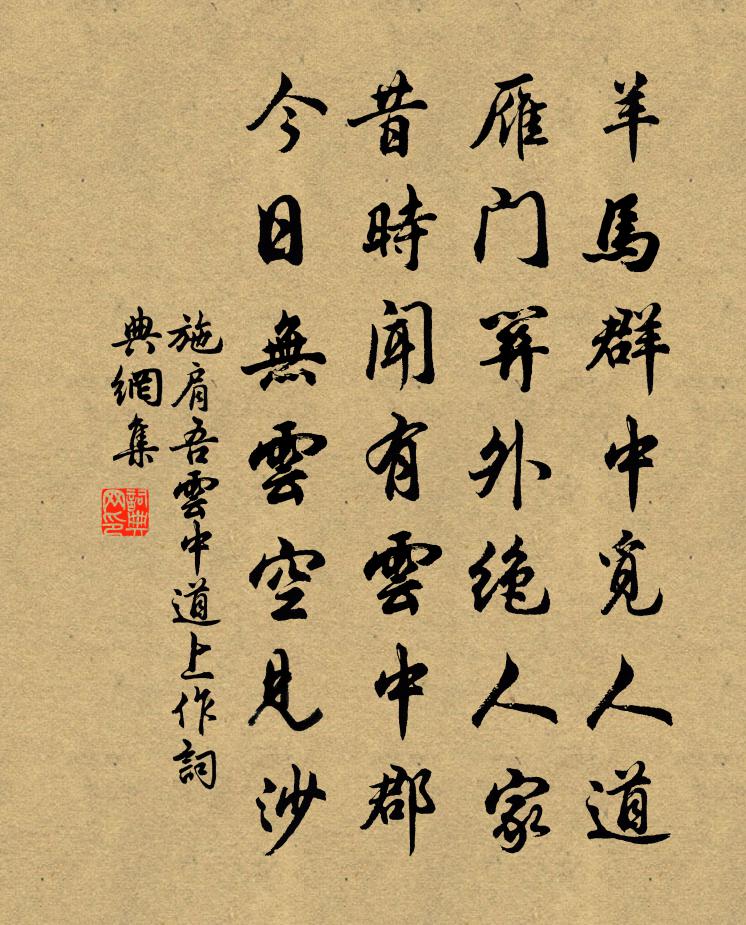 羊馬群中覓人道
雁门关外絶人家
昔時聞有雲中郡
今日無雲空見沙
施肩吾雲中道上作詞
典網集
詞典
网印